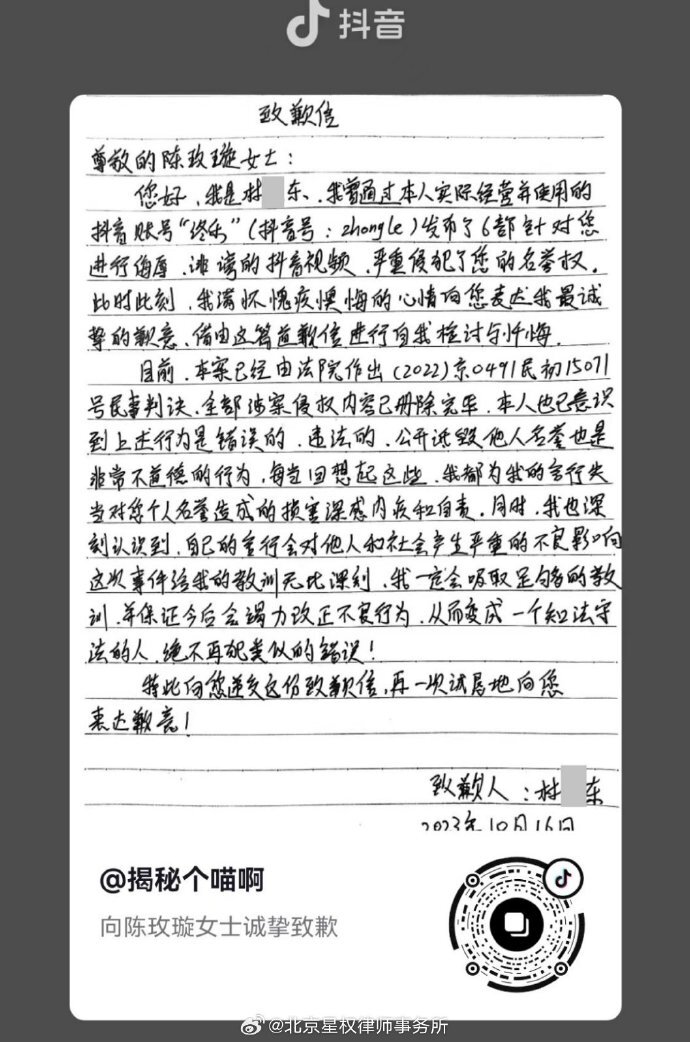 抖音
致歉信
尊敬的陈玫璇女士：
您好，我是林 东、我曾通过本人实际经营并使用的
抖音账号“终乐”（抖音号：zhongle）发布了6部针对您
进行侮辱、诽谤的抖音视频，严重侵犯了您的名誉权。
此时此刻，我满怀愧疚懊悔的心情向您表达我最诚
挚的歉意、借由这篇道歉信进行自我检讨与忏悔。
目前，本案已经由法院作出（2022）京0491民初15071
号民事判决，全部涉案侵权内容已删除完毕，本人也已意识
到上述行为是错误的、违法的，公开诋毁他人名誉也是
非常不道德的行为，每当回想起这些，我都为我的言行失
当对您个人名誉造成的损害深感内疚和自责，同时，我也深
刻认识到，自己的言行会对他人和社会产生严重的不良影响
这次事件给我的教训无比深刻，我一定会吸取足够的教
训，并保证今后会竭力改正不良行为，从而变成一个知法守
法的人，绝不再犯类似的错误！
特此向您递交这份致歉信，再一次诚恳地向您
表达歉意！
致歉人：林 东
2023年10月16日
@揭秘个喵啊
向陈玫璇女士诚挚致歉
@北京星权律师事务所